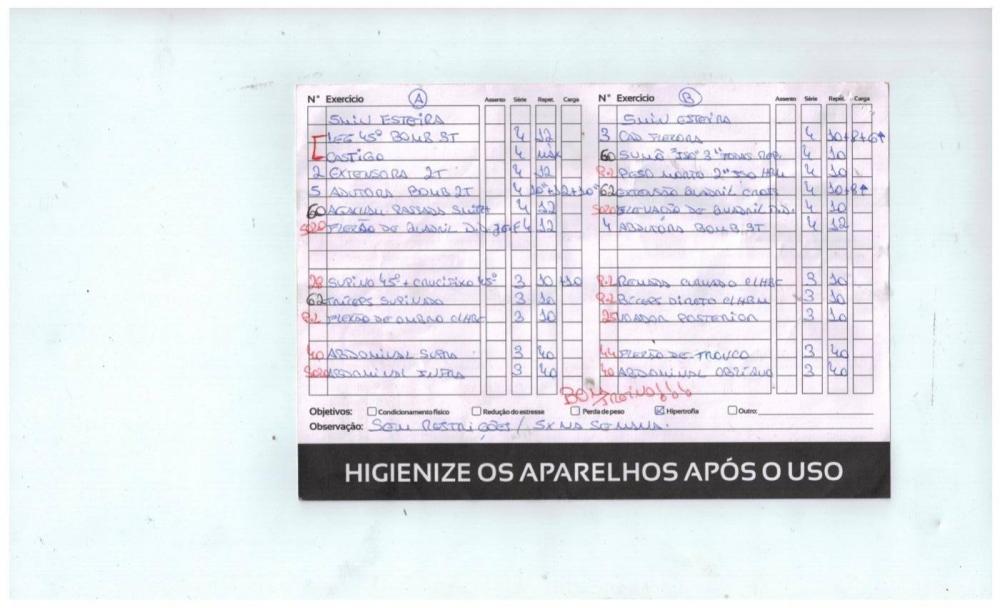 N° Exercício A Assento Série Repet. Carga
5MIN ESTEIRA
LEG 45° BOMB 3T 4 12
CASTIGO 4 MÁX
2 EXTENSORA 2T 4 12
5 ADUTORA BOMB 2T 4 10"+12+10"
60 AGACHAM PASSADA SMITH 4 12
SOLO FLEXÃO DE QUADRIL 4 12
28 SUPINO 45° + CRUCIFIXO 45° 3 10 +10
62 TRÍCEPS SUPINADO 3 10
P.L FLEXÃO DE OMBRO C/HBC 3 10
40 ABDOMINAL SUPRA 3 40
SOLO ABDOMINAL INFRA 3 40
N° Exercício B Assento Série Repet. Carga
5MIN ESTEIRA
3 CAD FLEXORA 4 10+8+6↑
60 SUMÔ "ISO" 3" TODAS REP. 4 10
P.L PESO MORTO 2" ISO HBM 4 10
62 EXTENSÃO QUADRIL CROSS 4 10+8↑
SOLO ELEVAÇÃO DE QUADRIL 4 10
4 ABDUTORA BOMB 3T 4 12
P.L REMADA CURVADO C/HBC 3 10
P.L BÍCEPS DIRETO C/HBM 3 10
25 VOADOR POSTERIOR 3 10
44 FLEXÃO DE TRONCO 3 40
40 ABDOMINAL OBLÍQUO 3 40
BOM TREINO!!!
Objetivos: Condicionamento físico Redução do estresse Perda de peso Hipertrofia Outro:
Observação: SEM RESTRIÇÕES / 5X NA SEMANA.
HIGIENIZE OS APARELHOS APÓS O USO